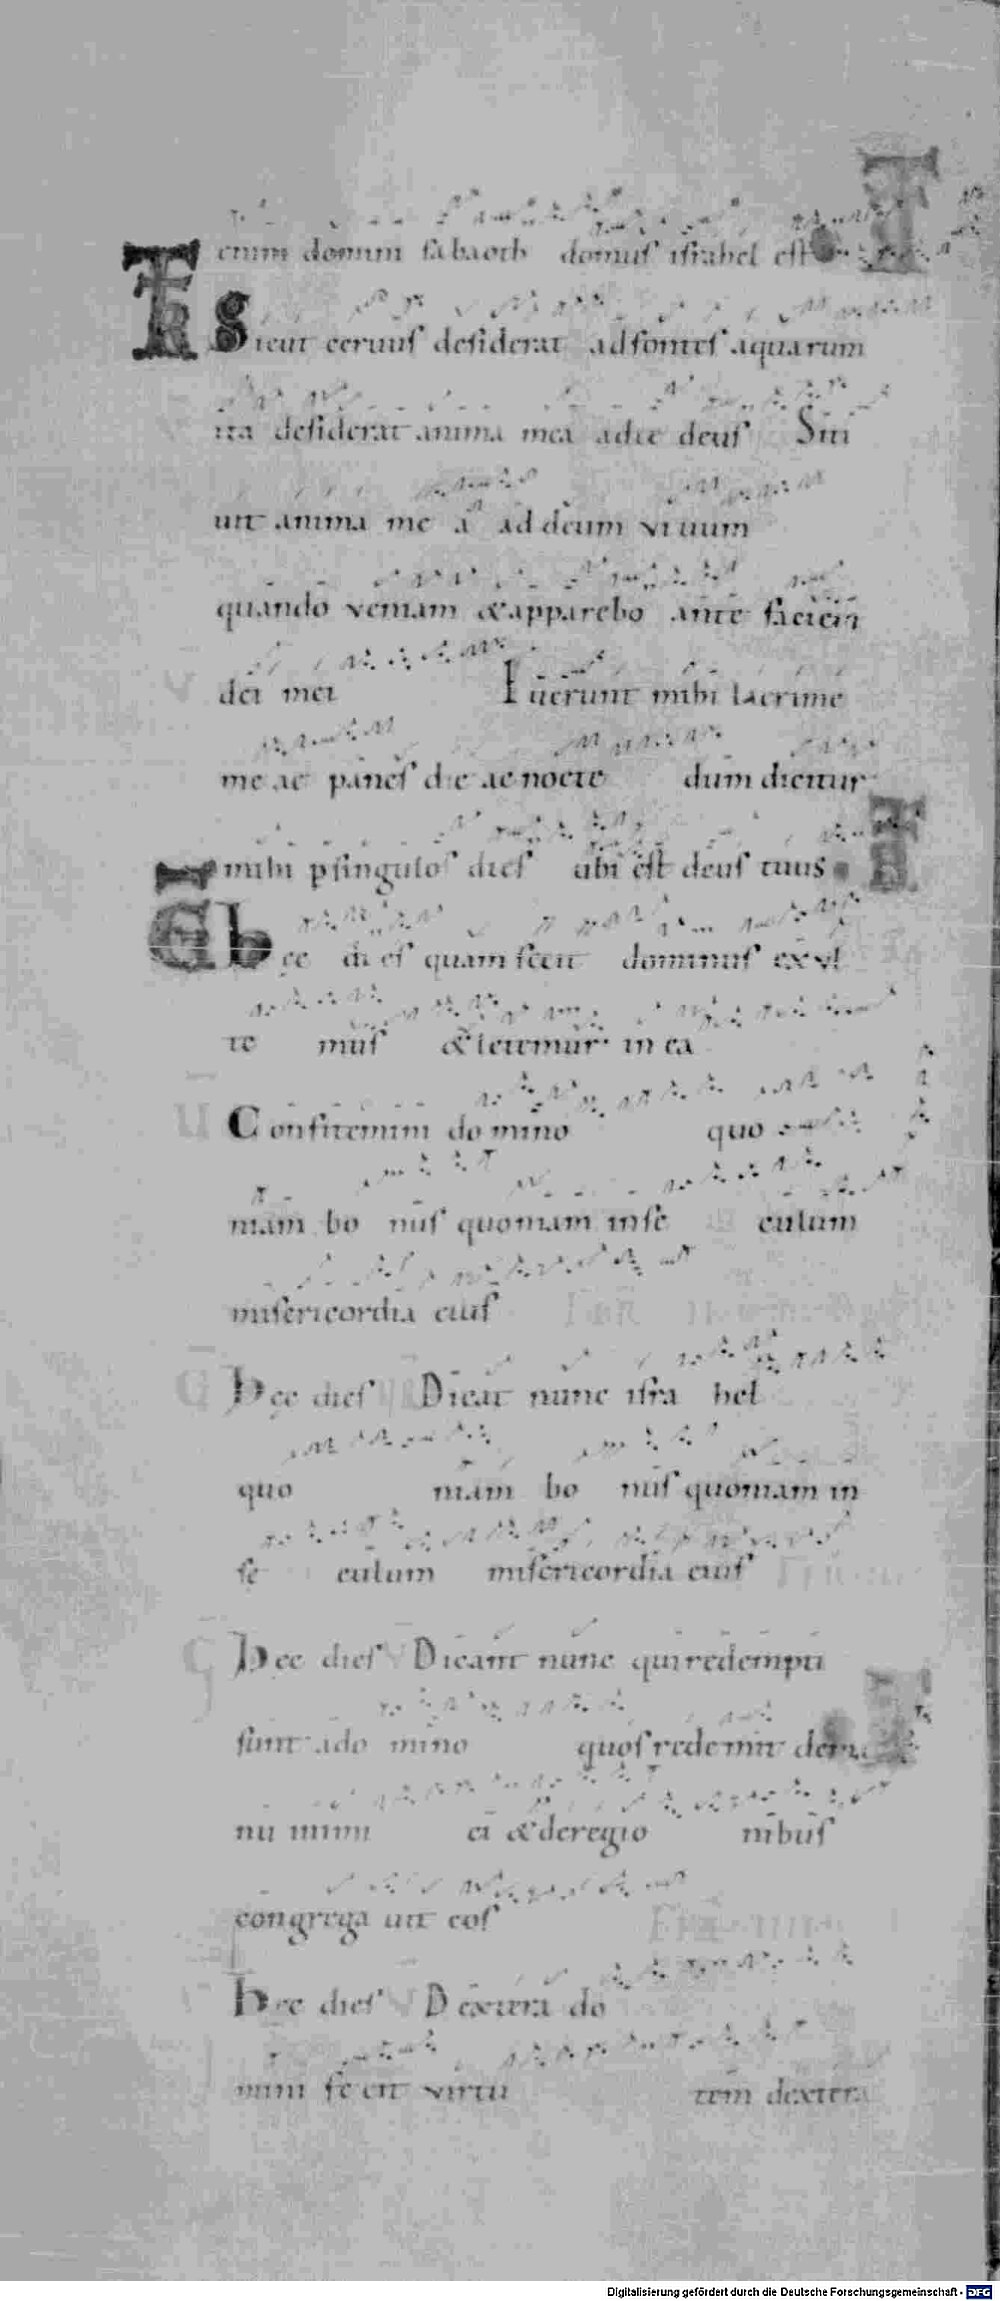 enim domini sabaoth domus israhel est
TR Sicut ceruus desiderat ad fontes aquarum
ita desiderat anima mea ad te deus Siti
uit anima me a ad deum viuum
quando veniam & apparebo ante faciem
dei mei Fuerunt mihi lacrime
me ac panes die ac nocte dum dicitur
mihi p singulos dies ubi est deus tuus
G hec di es quam fecit dominus exul
te mus & letemur in ea
Confitemini do mino quo
niam bo nus quoniam in se culum
misericordia eius
hec dies Dicat nunc isra hel
quo niam bo nus quoniam in
se culum misericordia eius
hec dies Dicant nunc qui redempti
sunt a do mino quos redemit de ma
nu inimi ci & de regio nibus
congrega uit eos
hec dies Dextera do
mini fe cit virtu tem dextera
Digitalisierung gefördert durch die Deutsche Forschungsgemeinschaft - DFG